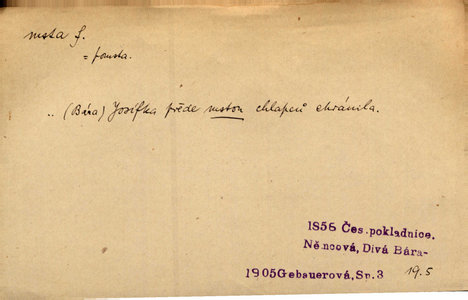 msta f.
= pomsta.
.. (Bára) Josífka přěde mstou chlapců chránila.
1856 Čes.pokladnice.
Němcová, Divá Bára-
1905Gebauerová,Sp.3 19.5